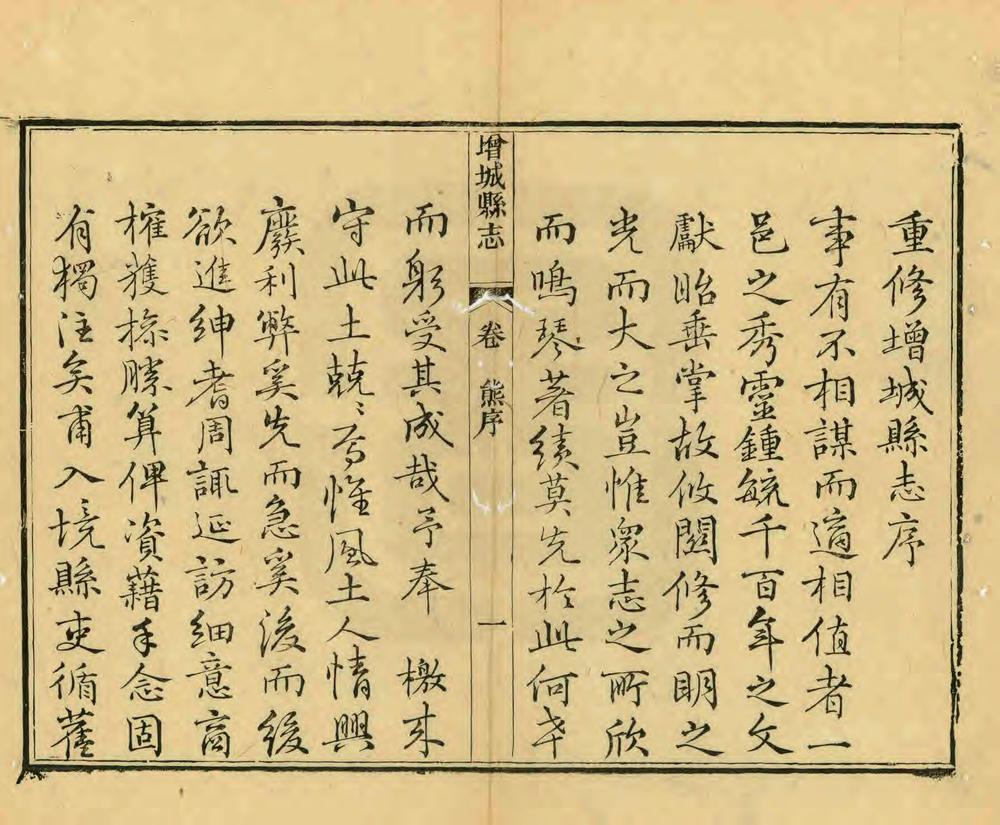 重修增城縣志序
事有不相謀而適相值者一
邑之秀靈鍾毓千百年之文
獻昭垂掌故攸關修而明之
光而大之豈惟眾志之所欣
而鳴琴著績莫先於此何幸
增城縣志 卷 熊序 一
而躬受其成哉予奉 檄來
守此土兢〻焉惟風土人情興
廢利弊奚先而急奚後而緩
欲進紳耆周諏延訪細意商
榷獲操勝算俾資藉手念固
有獨注矣甫入境縣吏循舊